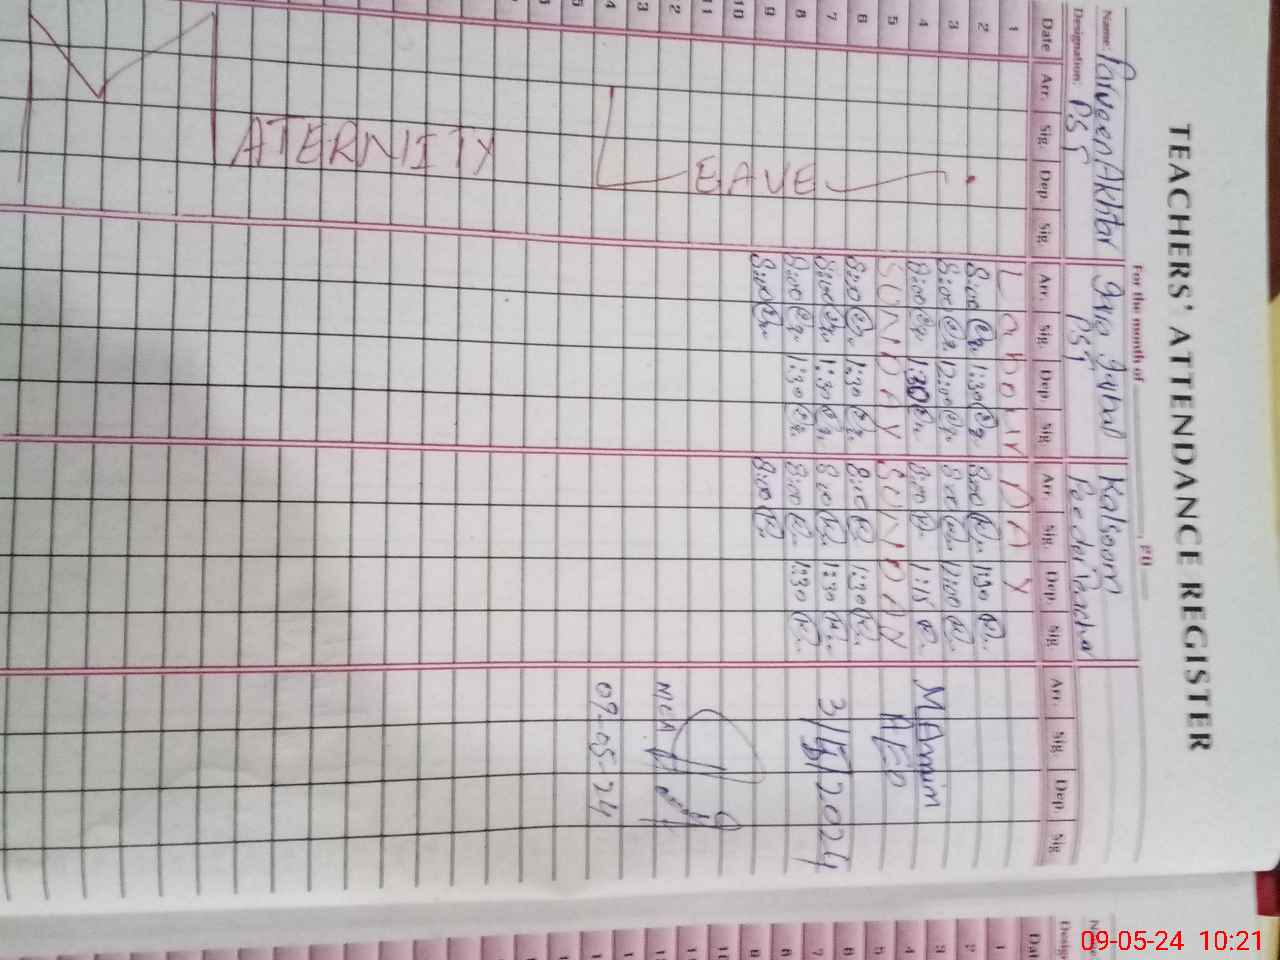 TEACHERS' ATTENDANCE REGISTER
For the month of 20
Name: Parveen Akhtar Kalsoom
Designation: PST PST
Date Arr. Sig. Dep Sig. Arr. Sig. Dep. Sig Arr. Sig. Dep. Sig Arr. Sig. Dep. Sig
1 Labour DAY
2 8:00 1:30 8:00 1:30
3 8:00 12:00 8:00 12:00
4 8:00 1:30 8:00 1:15 M Amin
5 SUNDAY SUNDAY AEO
6 8:00 1:30 8:00 1:30
7 8:00 1:30 8:00 1:30 3/5/2024
8 8:00 1:30 8:00 1:30
9 8:00 8:00
10
11
12 MEA
13
4 09-05-24
5
6
MATERNITY LEAVE
09-05-24 10:21